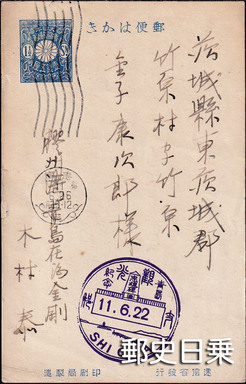 郵便はかき
茨城縣東茨城郡
竹原村字竹原
金子康次郎様
膠州湾青島在泊金剛
木村泰
觀光
紀念
11.6.22
印刷局製造
逓信省發行
郵史日乗